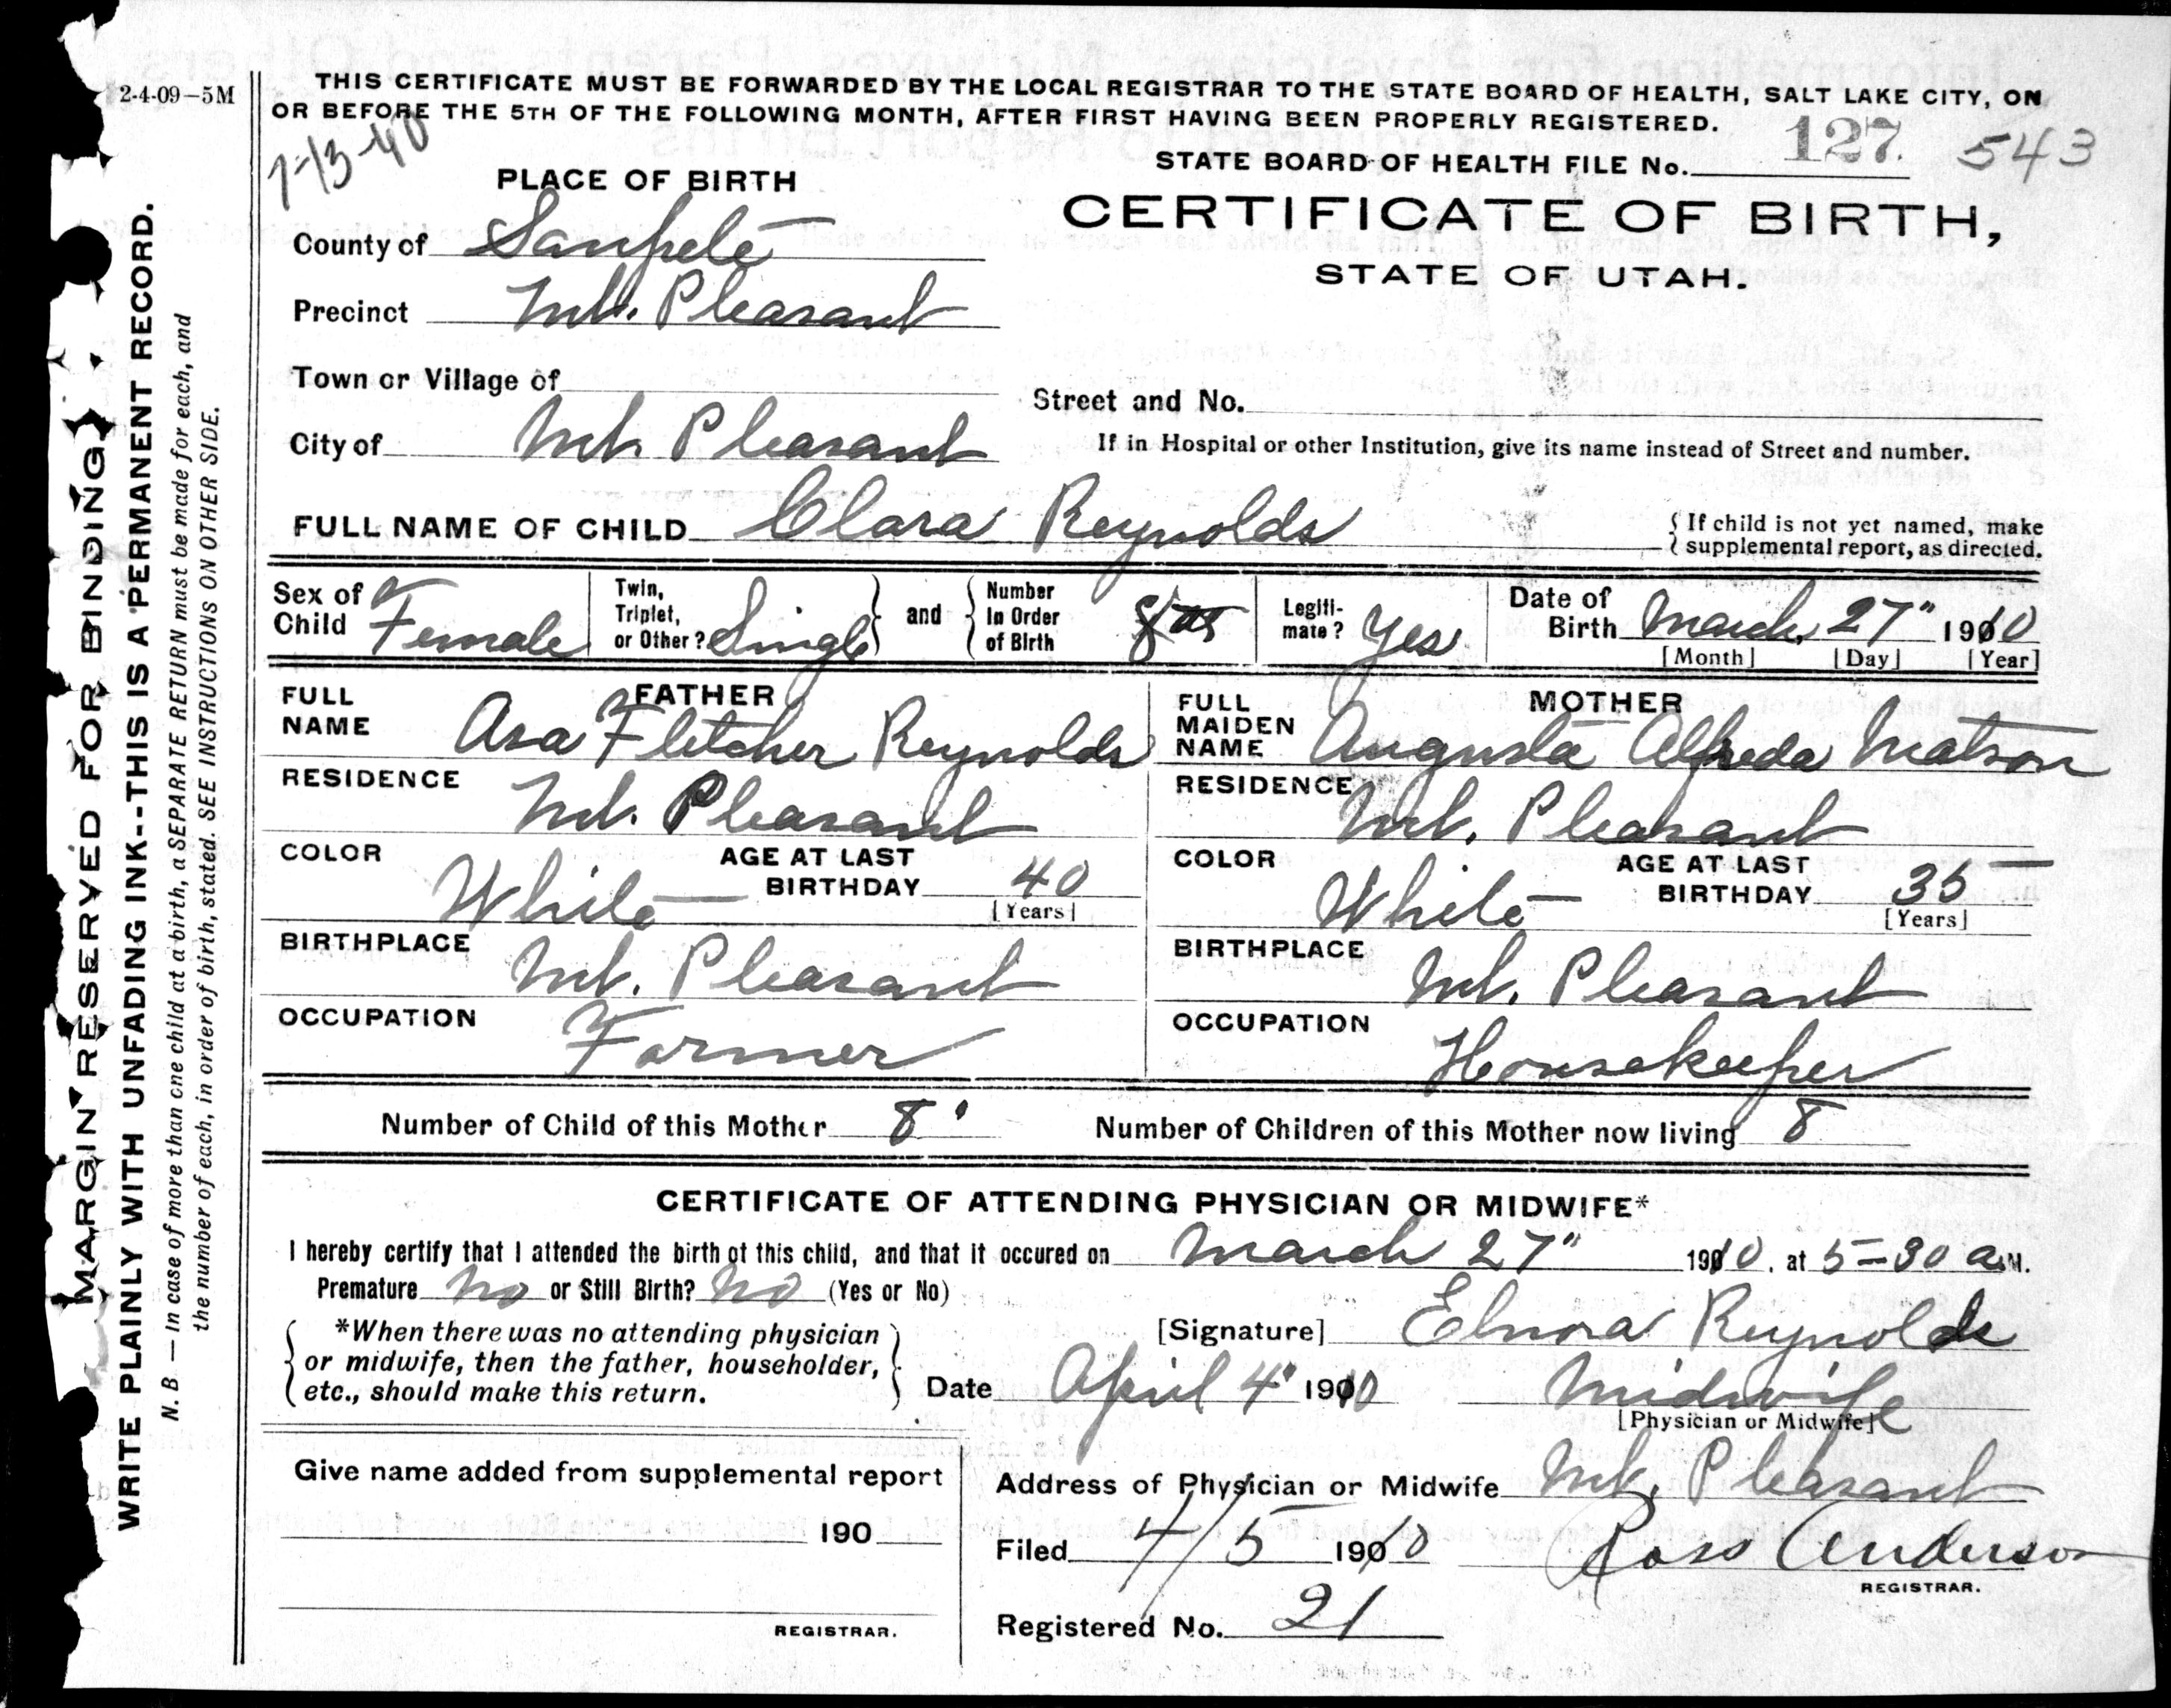 2-4-09-5M
THIS CERTIFICATE MUST BE FORWARDED BY THE LOCAL REGISTRAR TO THE STATE BOARD OF HEALTH, SALT LAKE CITY, ON
OR BEFORE THE 5TH OF THE FOLLOWING MONTH, AFTER FIRST HAVING BEEN PROPERLY REGISTERED.
7-13-40
STATE BOARD OF HEALTH FILE No. 127. 543
PLACE OF BIRTH
CERTIFICATE OF BIRTH,
STATE OF UTAH.
County of Sanpete
Precinct Mt. Pleasant
Town or Village of
Street and No.
City of Mt. Pleasant
If in Hospital or other Institution, give its name instead of Street and number.
FULL NAME OF CHILD Clara Reynolds
{ If child is not yet named, make
supplemental report, as directed.
Sex of Child Female
Twin, Triplet, or Other? Single
and
Number In Order of Birth 8th
Legiti-mate? Yes
Date of Birth March, 27" 1910
[Month] [Day] [Year]
FATHER
FULL NAME Asa Fletcher Reynolds
RESIDENCE Mt. Pleasant
COLOR White
AGE AT LAST BIRTHDAY 40
[Years]
BIRTHPLACE Mt. Pleasant
OCCUPATION Farmer
MOTHER
FULL MAIDEN NAME Augusta Alfreda Matson
RESIDENCE Mt. Pleasant
COLOR White
AGE AT LAST BIRTHDAY 35
[Years]
BIRTHPLACE Mt. Pleasant
OCCUPATION Housekeeper
Number of Child of this Mother 8
Number of Children of this Mother now living 8
CERTIFICATE OF ATTENDING PHYSICIAN OR MIDWIFE*
I hereby certify that I attended the birth of this child, and that it occured on March 27" 1910, at 5-30 a.M.
Premature No or Still Birth? No (Yes or No)
*When there was no attending physician
or midwife, then the father, householder,
etc., should make this return.
[Signature] Elnora Reynolds
Date April 4" 1910
Midwife
[Physician or Midwife]
Give name added from supplemental report
190
REGISTRAR.
Address of Physician or Midwife Mt. Pleasant
Filed 4/5 1910 Ross Anderson
REGISTRAR.
Registered No. 21
MARGIN RESERVED FOR BINDING)
WRITE PLAINLY WITH UNFADING INK--THIS IS A PERMANENT RECORD.
N. B — In case of more than one child at a birth, a SEPARATE RETURN must be made for each, and
the number of each, in order of birth, stated. SEE INSTRUCTIONS ON OTHER SIDE.